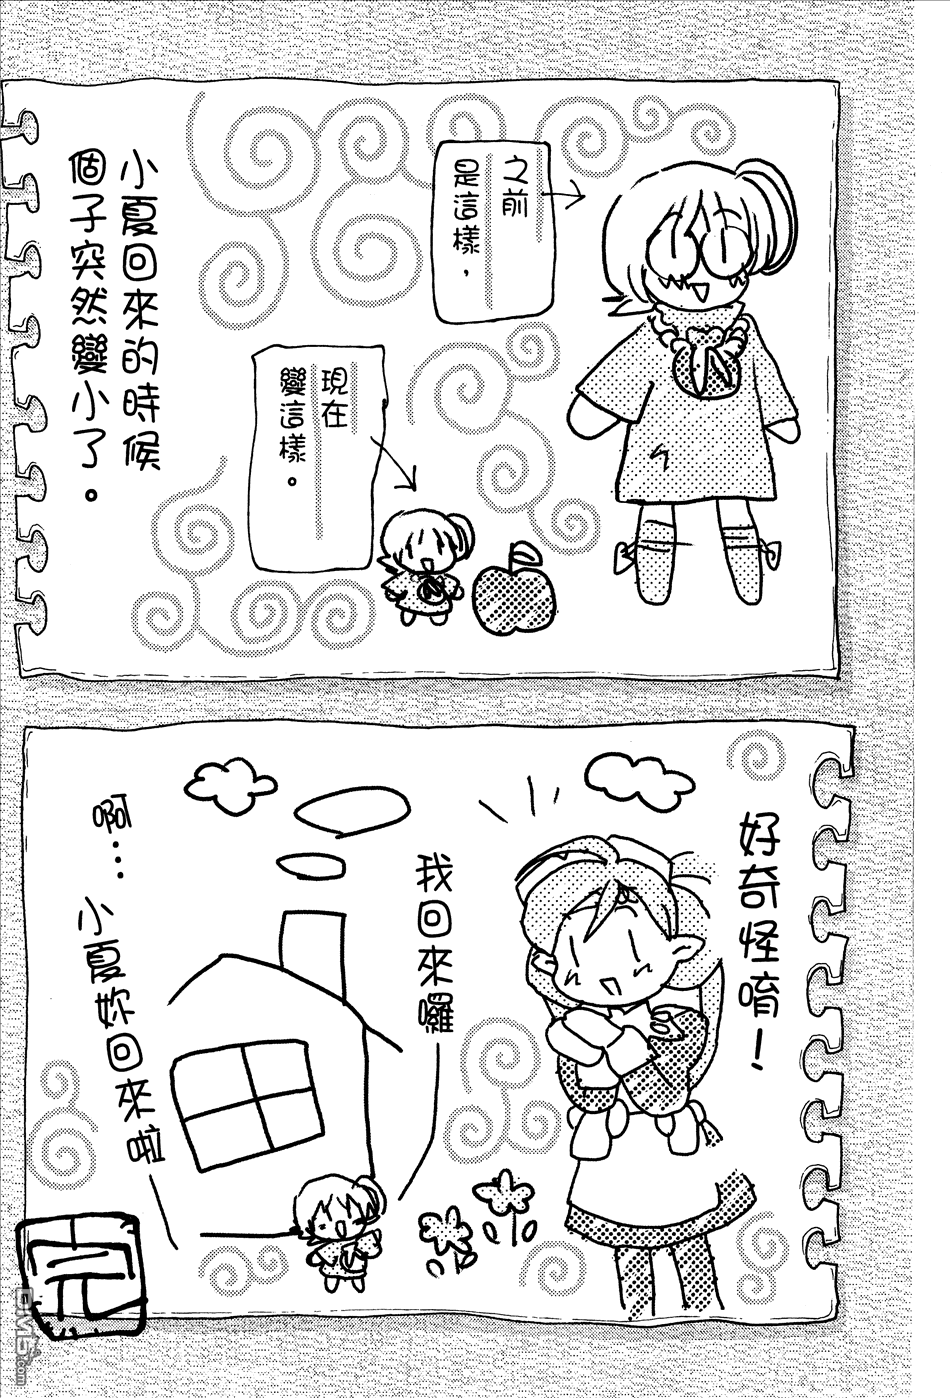 之前
是這樣，
現在
變這樣。
小夏回來的時候
個子突然變小了。
好奇怪唷！
我回來囉
啊…
小夏妳回來啦
完
DM5.com